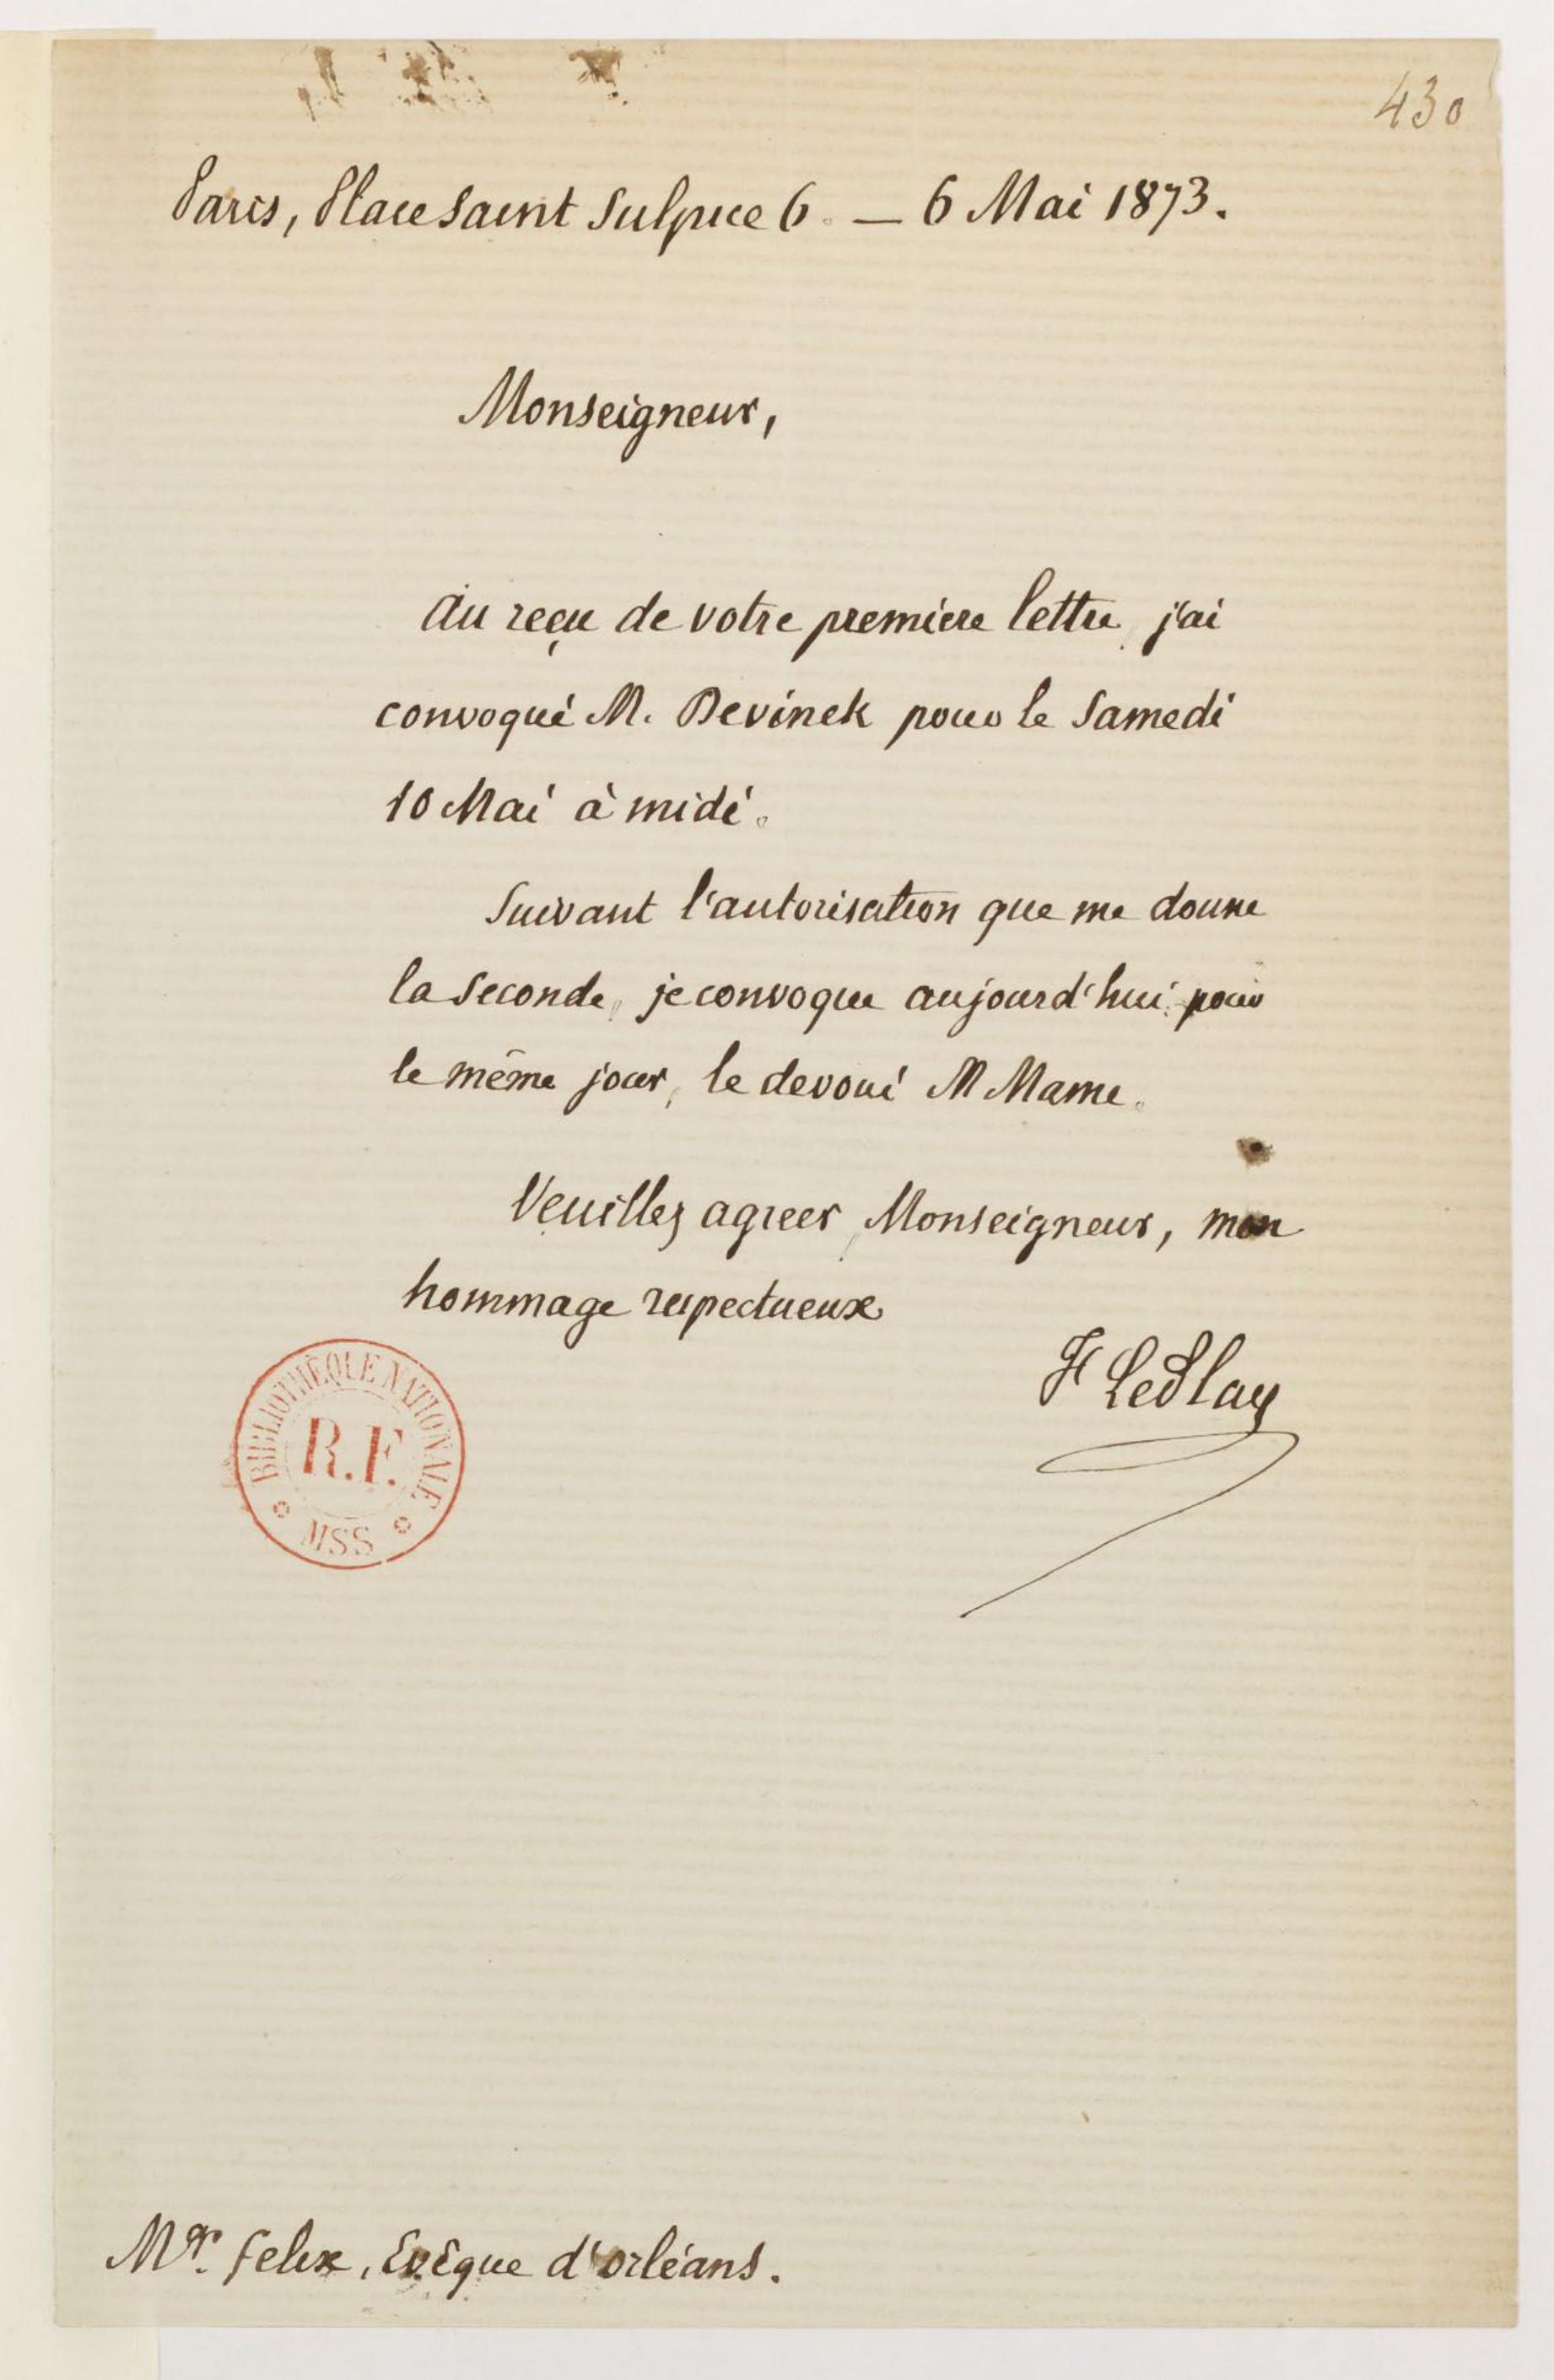 430
Paris, Place Saint Sulpice 6. — 6 Mai 1873.
Monseigneur,
Au reçu de votre premiere lettre, j'ai
convoqué M. Devinek pour le Samedi
10 Mai à midi.
Suivant l'autorisation que me donne
la seconde, je convoque aujourd'hui, pour
le même jour, le devoué M Mame.
Veuillez agreer, Monseigneur, mon
hommage respectueux
F LePlay
BIBLIOTHÈQUE NATIONALE
R.F.
MSS
Mgr. Felix, Evêque d'orléans.